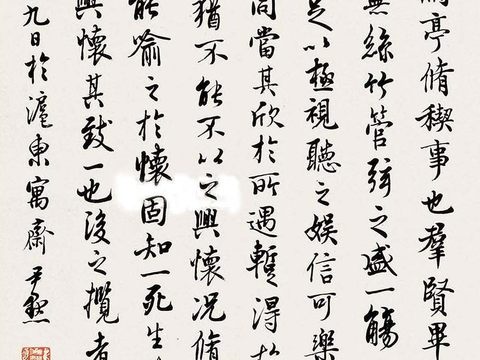 亭脩稧事也羣賢畢
無絲竹管弦之盛一觴
足以極視聽之娛信可樂
同當其欣於所遇蹔得於
猶不能不以之興懷況脩
能喻之於懷固知一死生
興懷其致一也後之攬者
九日於滬東寓齋 尹默